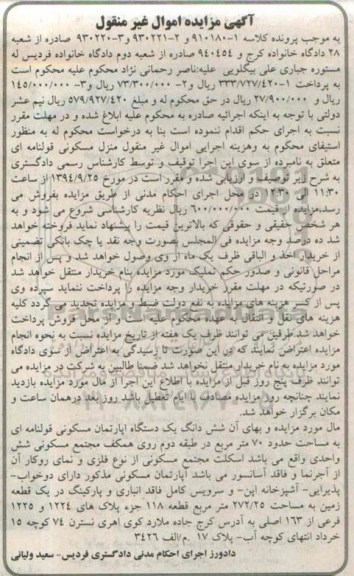 آگهی مزایده اموال غیر منقول
به موجب پرونده کلاسه ۱-۹۱۰۱۸۰ و ۲-۹۳۰۲۲۱ و۳-۹۳۰۲۲۰ صادره از شعبه
۲۸ دادگاه خانواده کرج و ۹۴۰۴۵۴ صادره از شعبه دوم دادگاه خانواده فردیس له
مستوره جباری علی بیگلویی علیه:ناصر رحمانی نژاد محکوم علیه محکوم است
به پرداخت ۱-۳۳۳/۷۲۷/۴۲۰ ریال ۲- ۷۳/۳۰۰/۰۰۰ ریال و۳- ۱۴۵/۰۰۰/۰۰۰
ریال و ۲۷/۹۰۰/۰۰۰ ریال در حق محکوم له و مبلغ ۵۷۹/۹۲۷/۴۲۰ ریال نیم عشر
دولتی با توجه به اینکه اجرائیه صادره به محکوم علیه ابلاغ شده و در مهلت مقرر
نسبت به اجرای حکم اقدام ننموده است بنا به درخواست محکوم له به منظور
استیفای محکوم به وهزینه اجرایی اموال غیر منقول منزل مسکونی قولنامه ای
متعلق به نامبرده از سوی این اجرا توقیف و توسط کارشناس رسمی دادگستری
به شرح زیر توصیف و ارزیابی شده و مقرر است در مورخ ۱۳۹۴/۹/۲۵ از ساعت
۱۱:۳۰ الی ۱۲:۳۰ در محل اجرای احکام مدنی از طریق مزایده بفروش می
رسد،مزایده از قیمت ۶۰۰/۰۰۰/۰۰۰ ریال نظریه کارشناسی شروع می شود و به
هر شخص حقیقی و حقوقی که بالاترین قیمت را پیشنهاد نماید فروخته خواهد
شد ده درصد وجه مزایده فی المجلس بصورت وجه نقد یا چک بانکی تضمینی
از خریدار اخذ و الباقی ظرف یک ماه از وی وصول خواهد شد و پس از انجام
مراحل قانونی و صدور حکم تملیک مورد مزایده بنام خریدار منتقل خواهد شد
در صورتیکه در مهلت مقرر خریدار وجه مزایده را پرداخت ننماید سپرده وی
پس از کسر هزینه های مزایده به نفع دولت ضبط و مزایده تجدید می گردد کلیه
هزینه های نقل و انتقال به عهده محکوم علیه است و از محل فروش پرداخت
خواهد شد.طرفین می توانند ظرف یک هفته از تاریخ مزایده نسبت به نحوه انجام
مزایده اعتراض نمایند که در این صورت تا رسیدگی به اعتراض از سوی دادگاه
مورد مزایده به نام خریدار منتقل نخواهد شد ضمنا طالبین به شرکت در مزایده می
توانند ظرف پنج روز قبل از مزایده با اطلاع این اجرا از مال مورد مزایده بازدید
نمایند چنانچه روز مزایده مصادف با ایام تعطیل باشد روز بعد درهمان ساعت و
مکان برگزار خواهد شد.
مال مورد مزایده و بهای آن شش دانگ یک دستگاه اپارتمان مسکونی قولنامه ای
به مساحت حدود ۷۰ متر مربع در طبقه دوم روی همکف مجتمع مسکونی شش
واحدی واقع می باشد اسکلت مجتمع مسکونی از نوع فلزی و نمای روکار آن
از آجرنما و فاقد آسانسور می باشد آپارتمان مسکونی مذکور دارای دوخواب-
پذیرایی- آشپزخانه اپن- و سرویس کامل فاقد انباری و پارکینگ در یک قطعه
زمین به مساحت ۲۷۲/۲۵ متر مربع قطعه ۱۱۸ جزء پلاک های ۱۲۲۴ و ۱۲۲۵
فرعی از ۱۶۳ اصلی به آدرس کرج جاده ملارد کوی اهری نسترن ۷۴ کوچه ۱۵
خرداد انتهای کوچه آب- پلاک ۱۷ .م/الف ۳۴۲۶
دادورز اجرای احکام مدنی دادگستری فردیس- سعید ولیانی